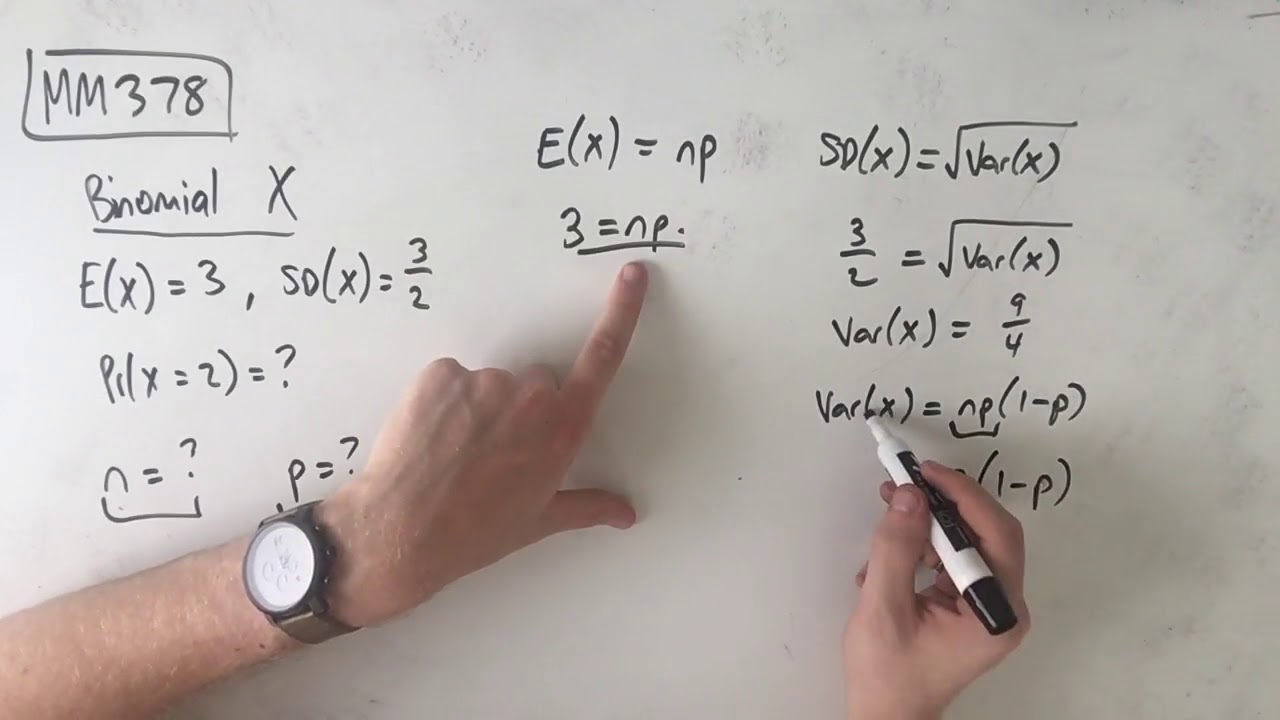 MM378
Binomial X
E(x) = 3 , SD(x) = 3/2
Pr(x = 2) = ?
n = ? p = ?
E(x) = np
3 = np.
SD(x) = √Var(x)
3/2 = √Var(x)
Var(x) = 9/4
Var(x) = np(1-p)
(1-p)